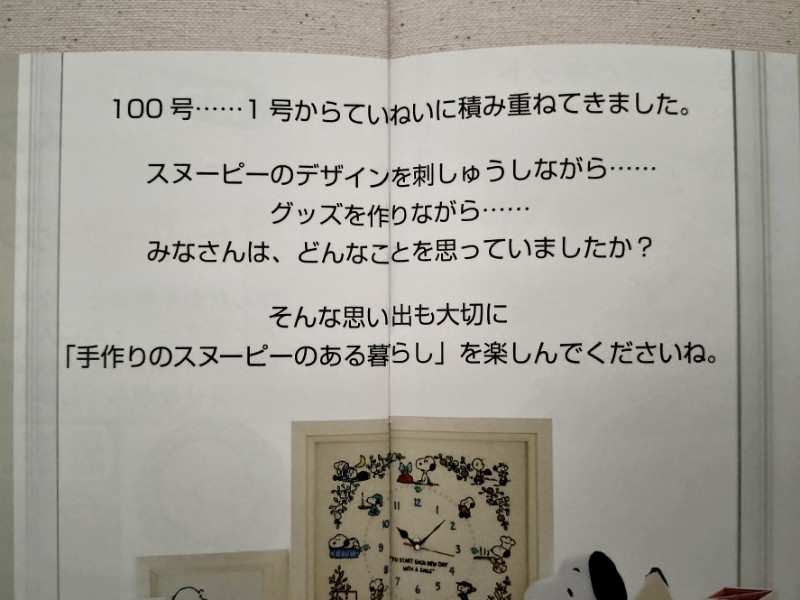 100号……1号からていねいに積み重ねてきました。
スヌーピーのデザインを刺しゅうしながら……
グッズを作りながら……
みなさんは、どんなことを思っていましたか?
そんな思い出も大切に
「手作りのスヌーピーのある暮らし」を楽しんでくださいね。
12
11 1
10 2
9 3
8 4
7 6 5
START EACH NEW DAY
WITH A SMILE